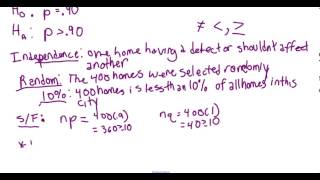 H₀: p = .90
Hₐ: p > .90
≠ <, >
Independence: one home having a detector shouldn't affect
another
Random: The 400 homes were selected randomly
10%: 400 homes is less than 10% of all homes in this
city
S/F: np = 400(.9) nq = 400(.1)
= 360≥10 = 40≥10